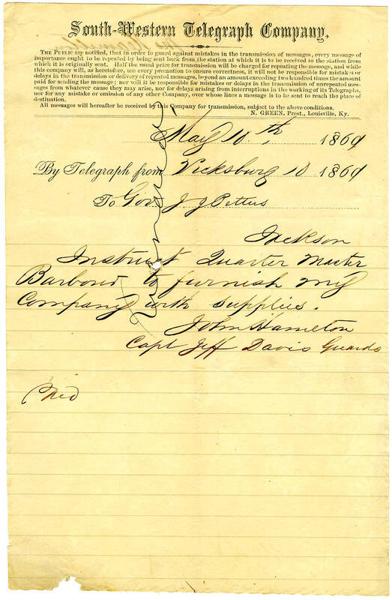 South-Western Telegraph Company.
THE PUBLIC are notified, that in order to guard against mistakes in the transmission of messages, every message of
importance ought to be repeated by being sent back from the station at which it is to be received to the station from
which it is originally sent. Half the usual price for transmission will be charged for repeating the message, and while
this company will, as heretofore, use every precaution to ensure correctness, it will not be responsible for mistakes or
delays in the transmission or delivery of repeated messages, beyond an amount exceeding two hundred times the amount
paid for sending the message; nor will it be responsible for mistakes or delays in the transmission of unrepeated messages
from whatever cause they may arise, nor for delays arising from interruptions in the working of its Telegraphs,
nor for any mistake or omission of any other Company, over whose lines a message is to be sent to reach the place of
destination.
All messages will hereafter be received by this Company for transmission, subject to the above conditions.
N. GREEN, Prest., Louisville, Ky.
May 10th, 1861
By Telegraph from Vicksburg 10 1861
To Gov J. J Pettus
Jackson
Instruct Quarter Master
Barbour to furnish my
Company with supplies.
John Hamelton
Capt Jeff Davis Guards